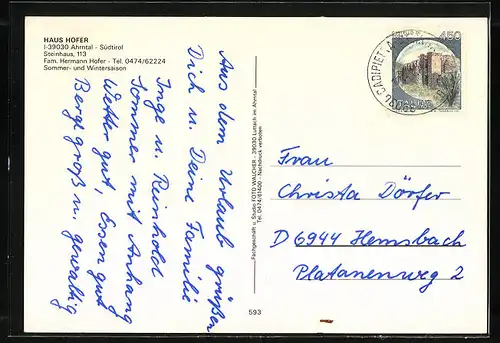 HAUS HOFER
I-39030 Ahrntal - Südtirol
Steinhaus, 113
Fam. Hermann Hofer - Tel. 0474/62224
Sommer- und Wintersaison
Aus dem Urlaub grüßen
Dich u. Deine Familie
Inge u. Reinhold
Sommer mit Anhang
Wetter gut, Essen gut
Berge groß u. gewaltig
Fachgeschäft u. Studio FOTO WALCHER - 39030 Luttach im Ahrntal
Tel. 0474/61400 - Nachdruck verboten
593
450
Frau
Christa Dörfer
D 6944 Hemsbach
Platanenweg 2